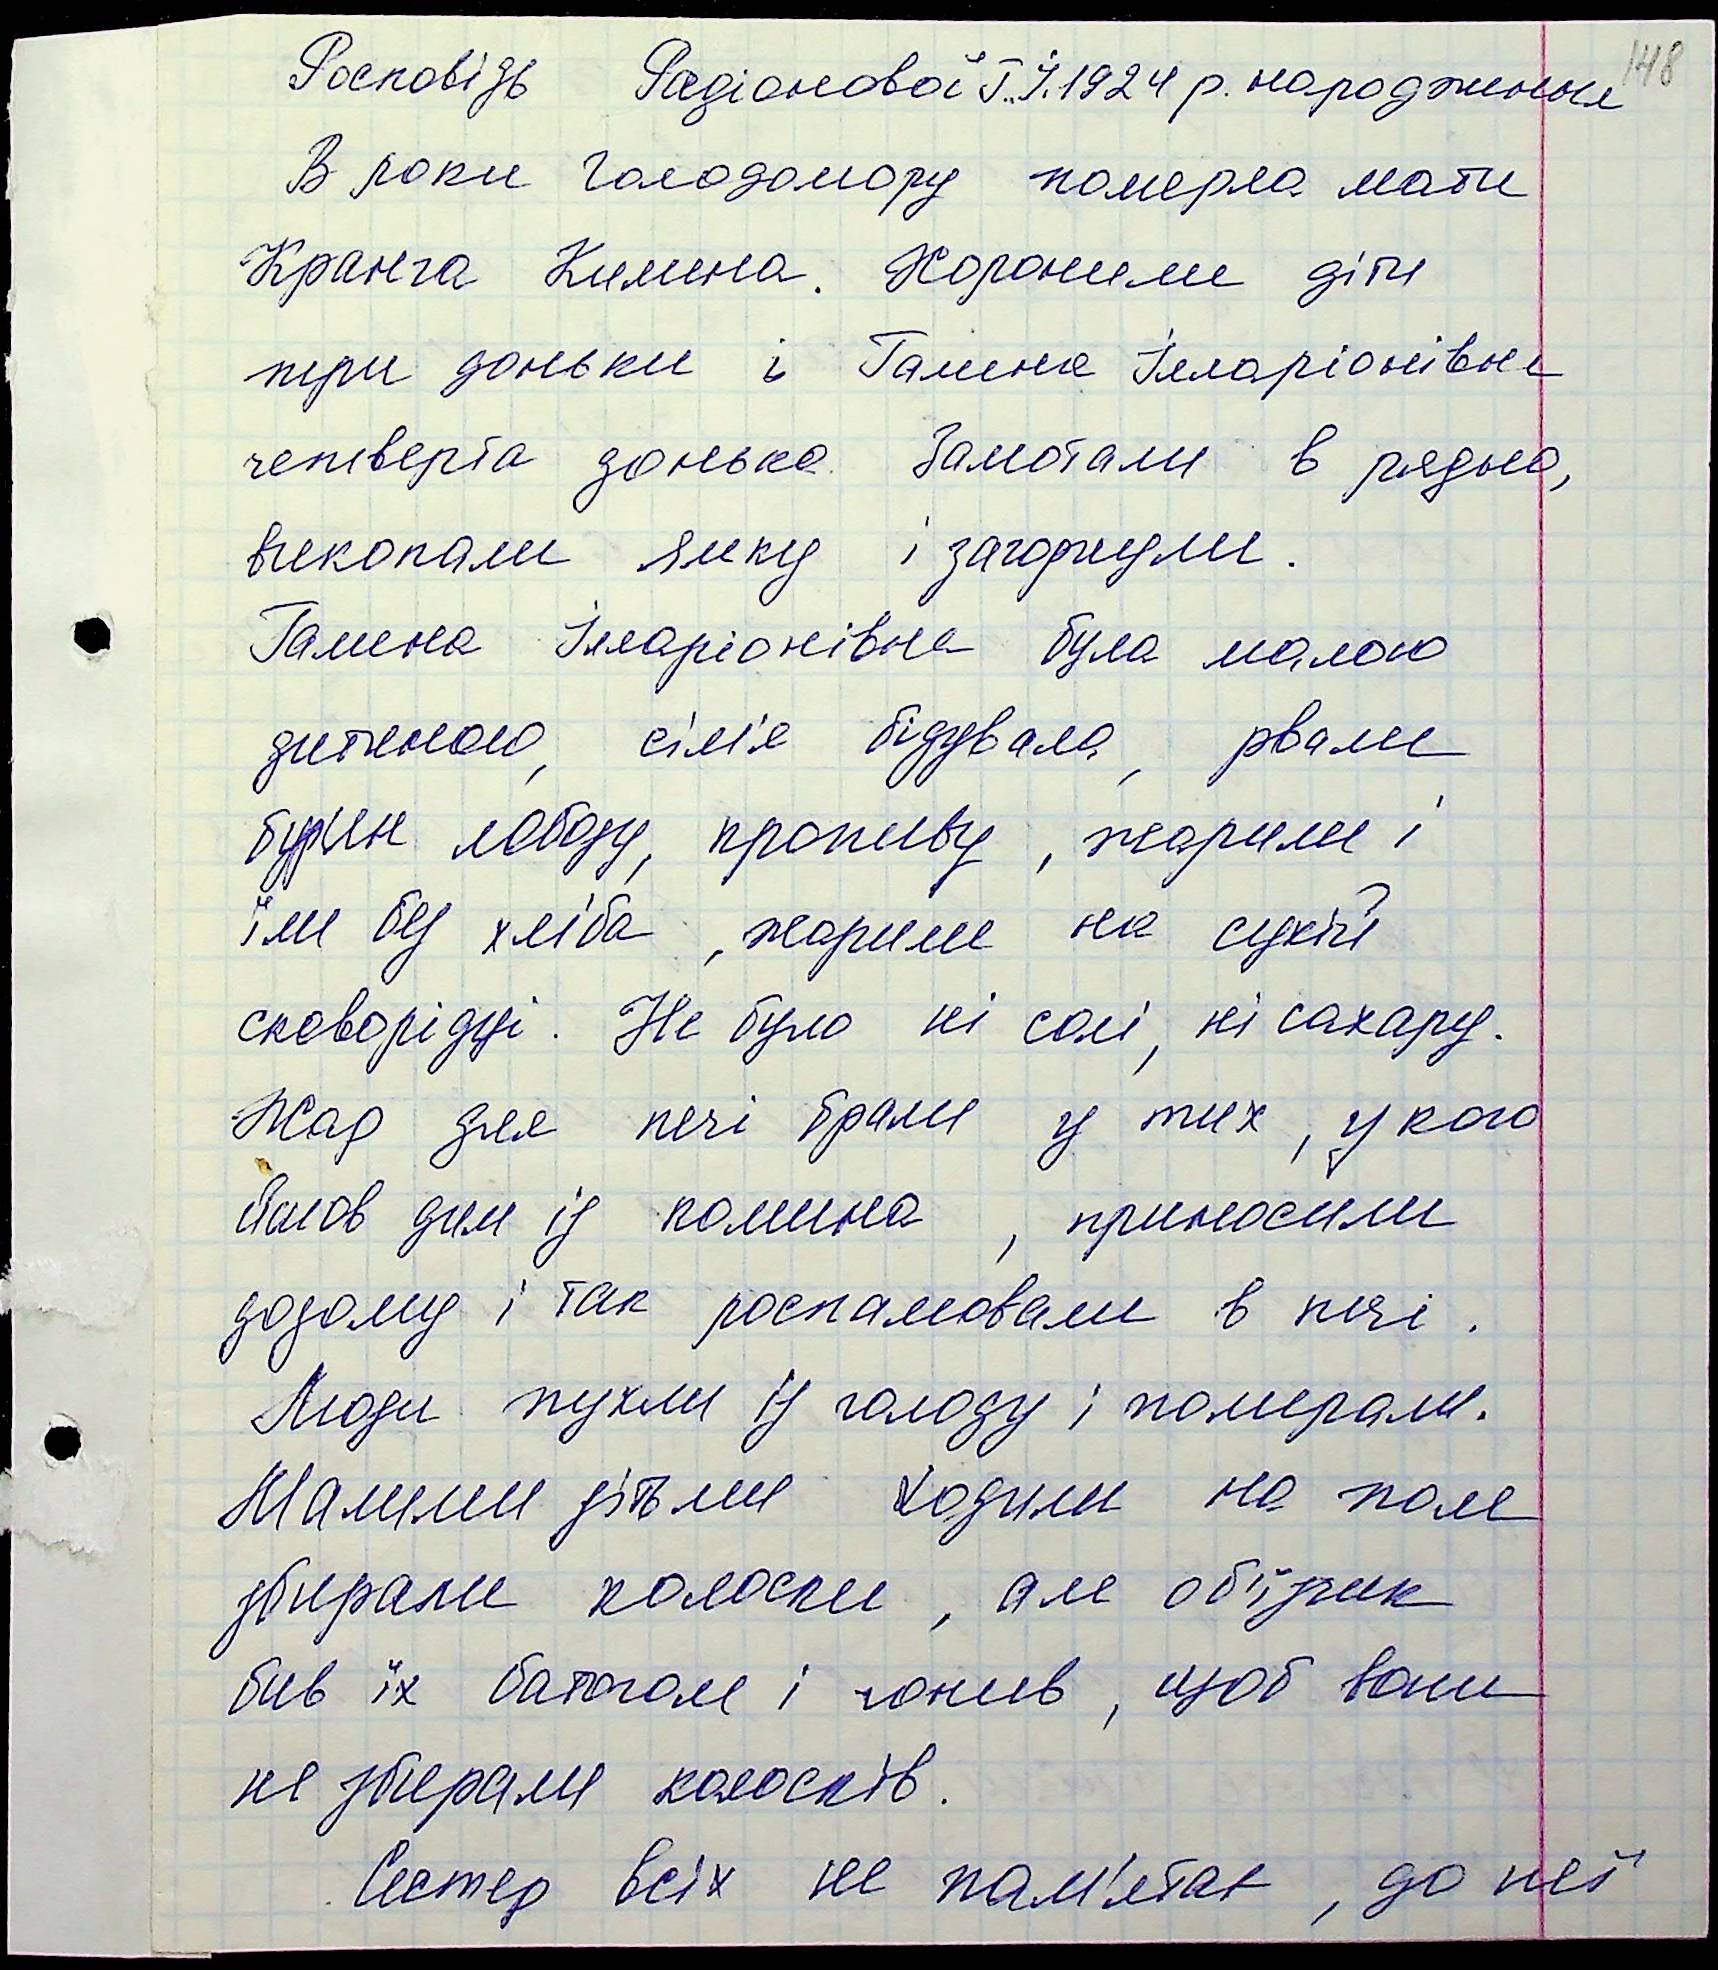 148
Росповідь Радіонової Г.І. 1924 р. народження
В роки Голодомору померла мати
Кранга Килина. Хоронили діти
три доньки і Галина Ілларіонівна
четверта донька. Замотали в рядно,
викопали ямку і загорнули.
Галина Ілларіонівна була малою
дитиною, сім'я бідувала, рвали
бур'ян лободу, кропиву, жарили і
їли без хліба, жарили на сухій
сковорідці. Не було ні солі, ні сахару.
Жар для печі брали у тих, у кого
йшов дим із комина, приносили
додому і так роспалювали в печі.
Люди пухли із голоду і померали.
Малими дітьми ходили на поле
збирали колоски, але об'їзчик
бив їх батогом і гонив, щоб вони
не збирали колосків.
Сестер всіх не пам'ятає, до неї